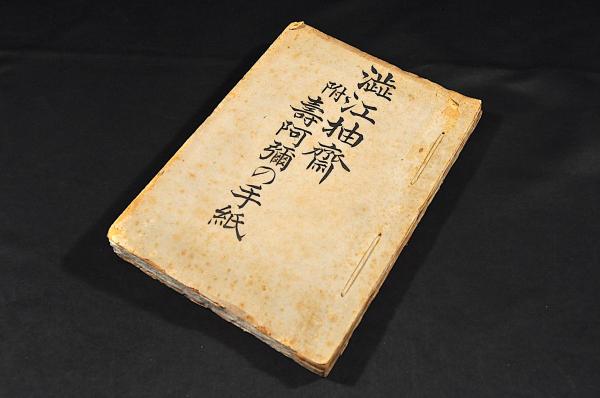 澀江抽齋
附壽阿彌の手紙